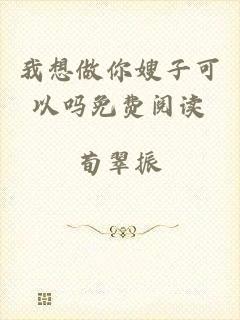 我想做你嫂子可
以吗免费阅读
荀翠振